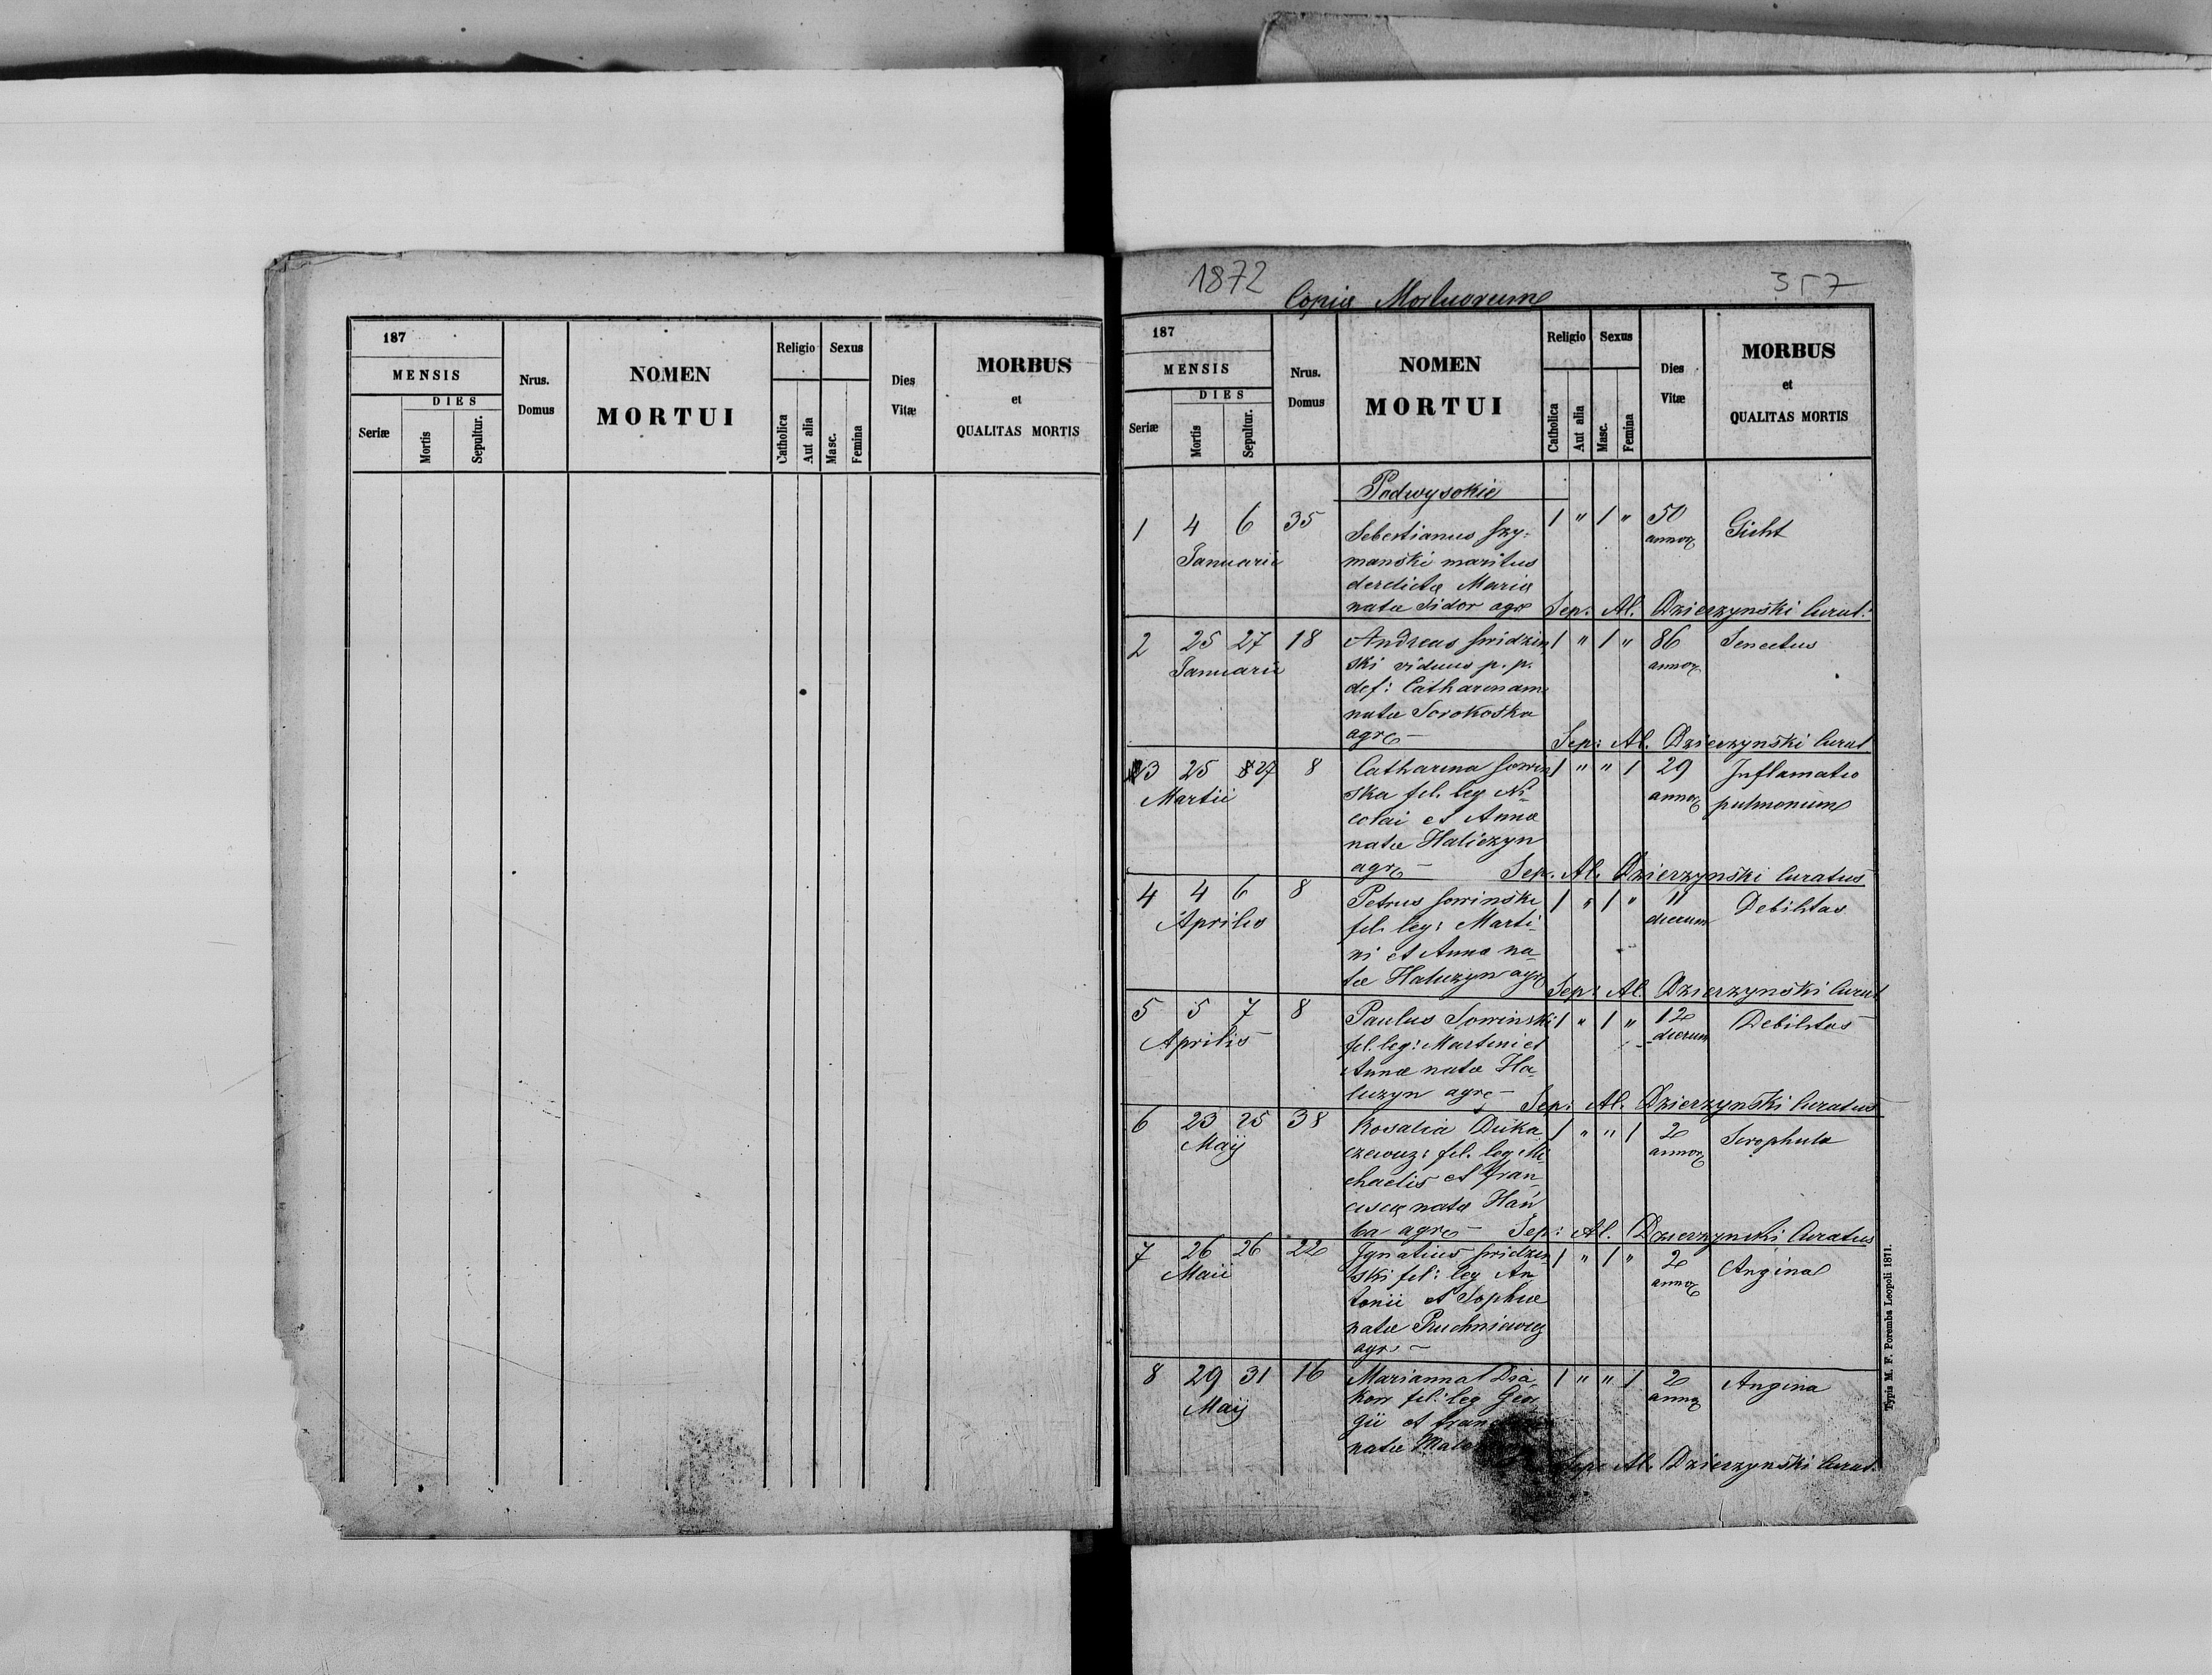 187
MENSIS
DIES
Seriæ
Mortis
Sepultur.
Nrus.
Domus
NOMEN
MORTUI
Religio
Catholica
Aut alia
Sexus
Masc.
Femina
Dies
Vitæ
MORBUS
et
QUALITAS MORTIS
1872
357
Copia Mortuorum
187
MENSIS
DIES
Seriæ
Mortis
Sepultur.
Nrus.
Domus
NOMEN
MORTUI
Religio
Catholica
Aut alia
Sexus
Masc.
Femina
Dies
Vitæ
MORBUS
et
QUALITAS MORTIS
Podwysokie
1 4 6 35 Sebestianus Szy= 1 " 1 " 50 Gicht
Januarii manski maritus annor
derelictæ Maria
natæ Sidor agr
Sep. Al. Dzierzynski Curat.
2 25 27 18 Andreas Swidzin 1 " 1 " 86 Senectus
Januarii ski viduus p. p. annor
def: Catharinam
natæ Sorokoska
agr
Sep: Al. Dzierzynski Curat
3 25 27 8 Catharina Sowin 1 " " 1 29 Inflamatio
Martii ska fil. leg Ni- annor pulmonum
colai et Anna
natæ Haliczyn
agr
Sep. Al. Dzierzynski Curatus
4 4 6 8 Petrus Sowinski 1 " 1 " 11 Debilitas
Aprilis fil. leg: Marti- dierum
ni et Anna na-
tæ Haluzyn agr
Sep: Al. Dzierzynski Curat
5 5 7 8 Paulus Sowinski 1 " 1 " 12 Debilitas
Aprilis fil. leg: Martini et dierum
Annæ natæ Ha-
luzyn agr
Sep: Al. Dzierzynski Curatus
6 23 25 38 Rosalia Duka 1 " " 1 2 Scrophula
Maij fil. leg Mi- annor
chaelis et Fran-
ciscæ natæ Hań
ba agr Sep: Al. Dzierzynski Curatus
7 26 26 22 Ignatius Swidzin 1 " 1 " 2 Angina
Maii ski fil: leg An- annor
tonii et Sophiæ
natæ Puchniewicz
agr
8 29 31 16 Marianna Dia- 1 " " 1 2 Angina
Maij kow fil: leg Geor annor
gii et Fran
natæ
Sep: Al. Dzierzynski Curat.
Typis M. F. Poremba Leopoli 1871.